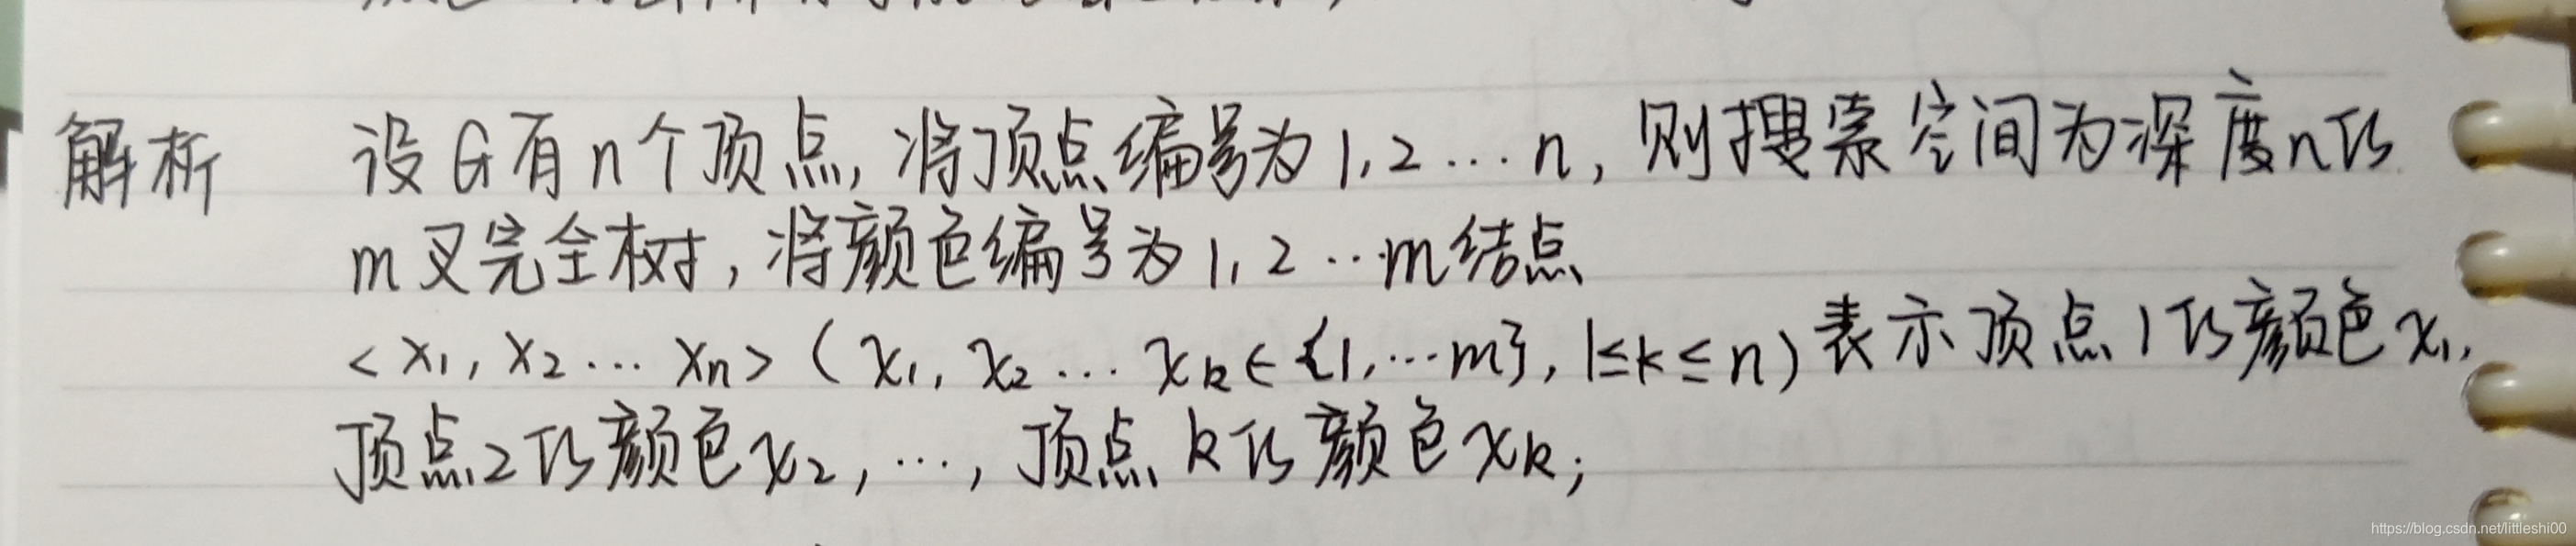 解析 设G有n个顶点,将顶点编号为1,2…n,则搜索空间为深度n的
m叉完全树,将颜色编号为1,2…m结点
<x₁,x₂…xₙ>(x₁,x₂…xₖ∈{1,…m},1≤k≤n)表示顶点1的颜色x₁,
顶点2的颜色x₂,…,顶点k的颜色xₖ;
https://blog.csdn.net/littleshi00